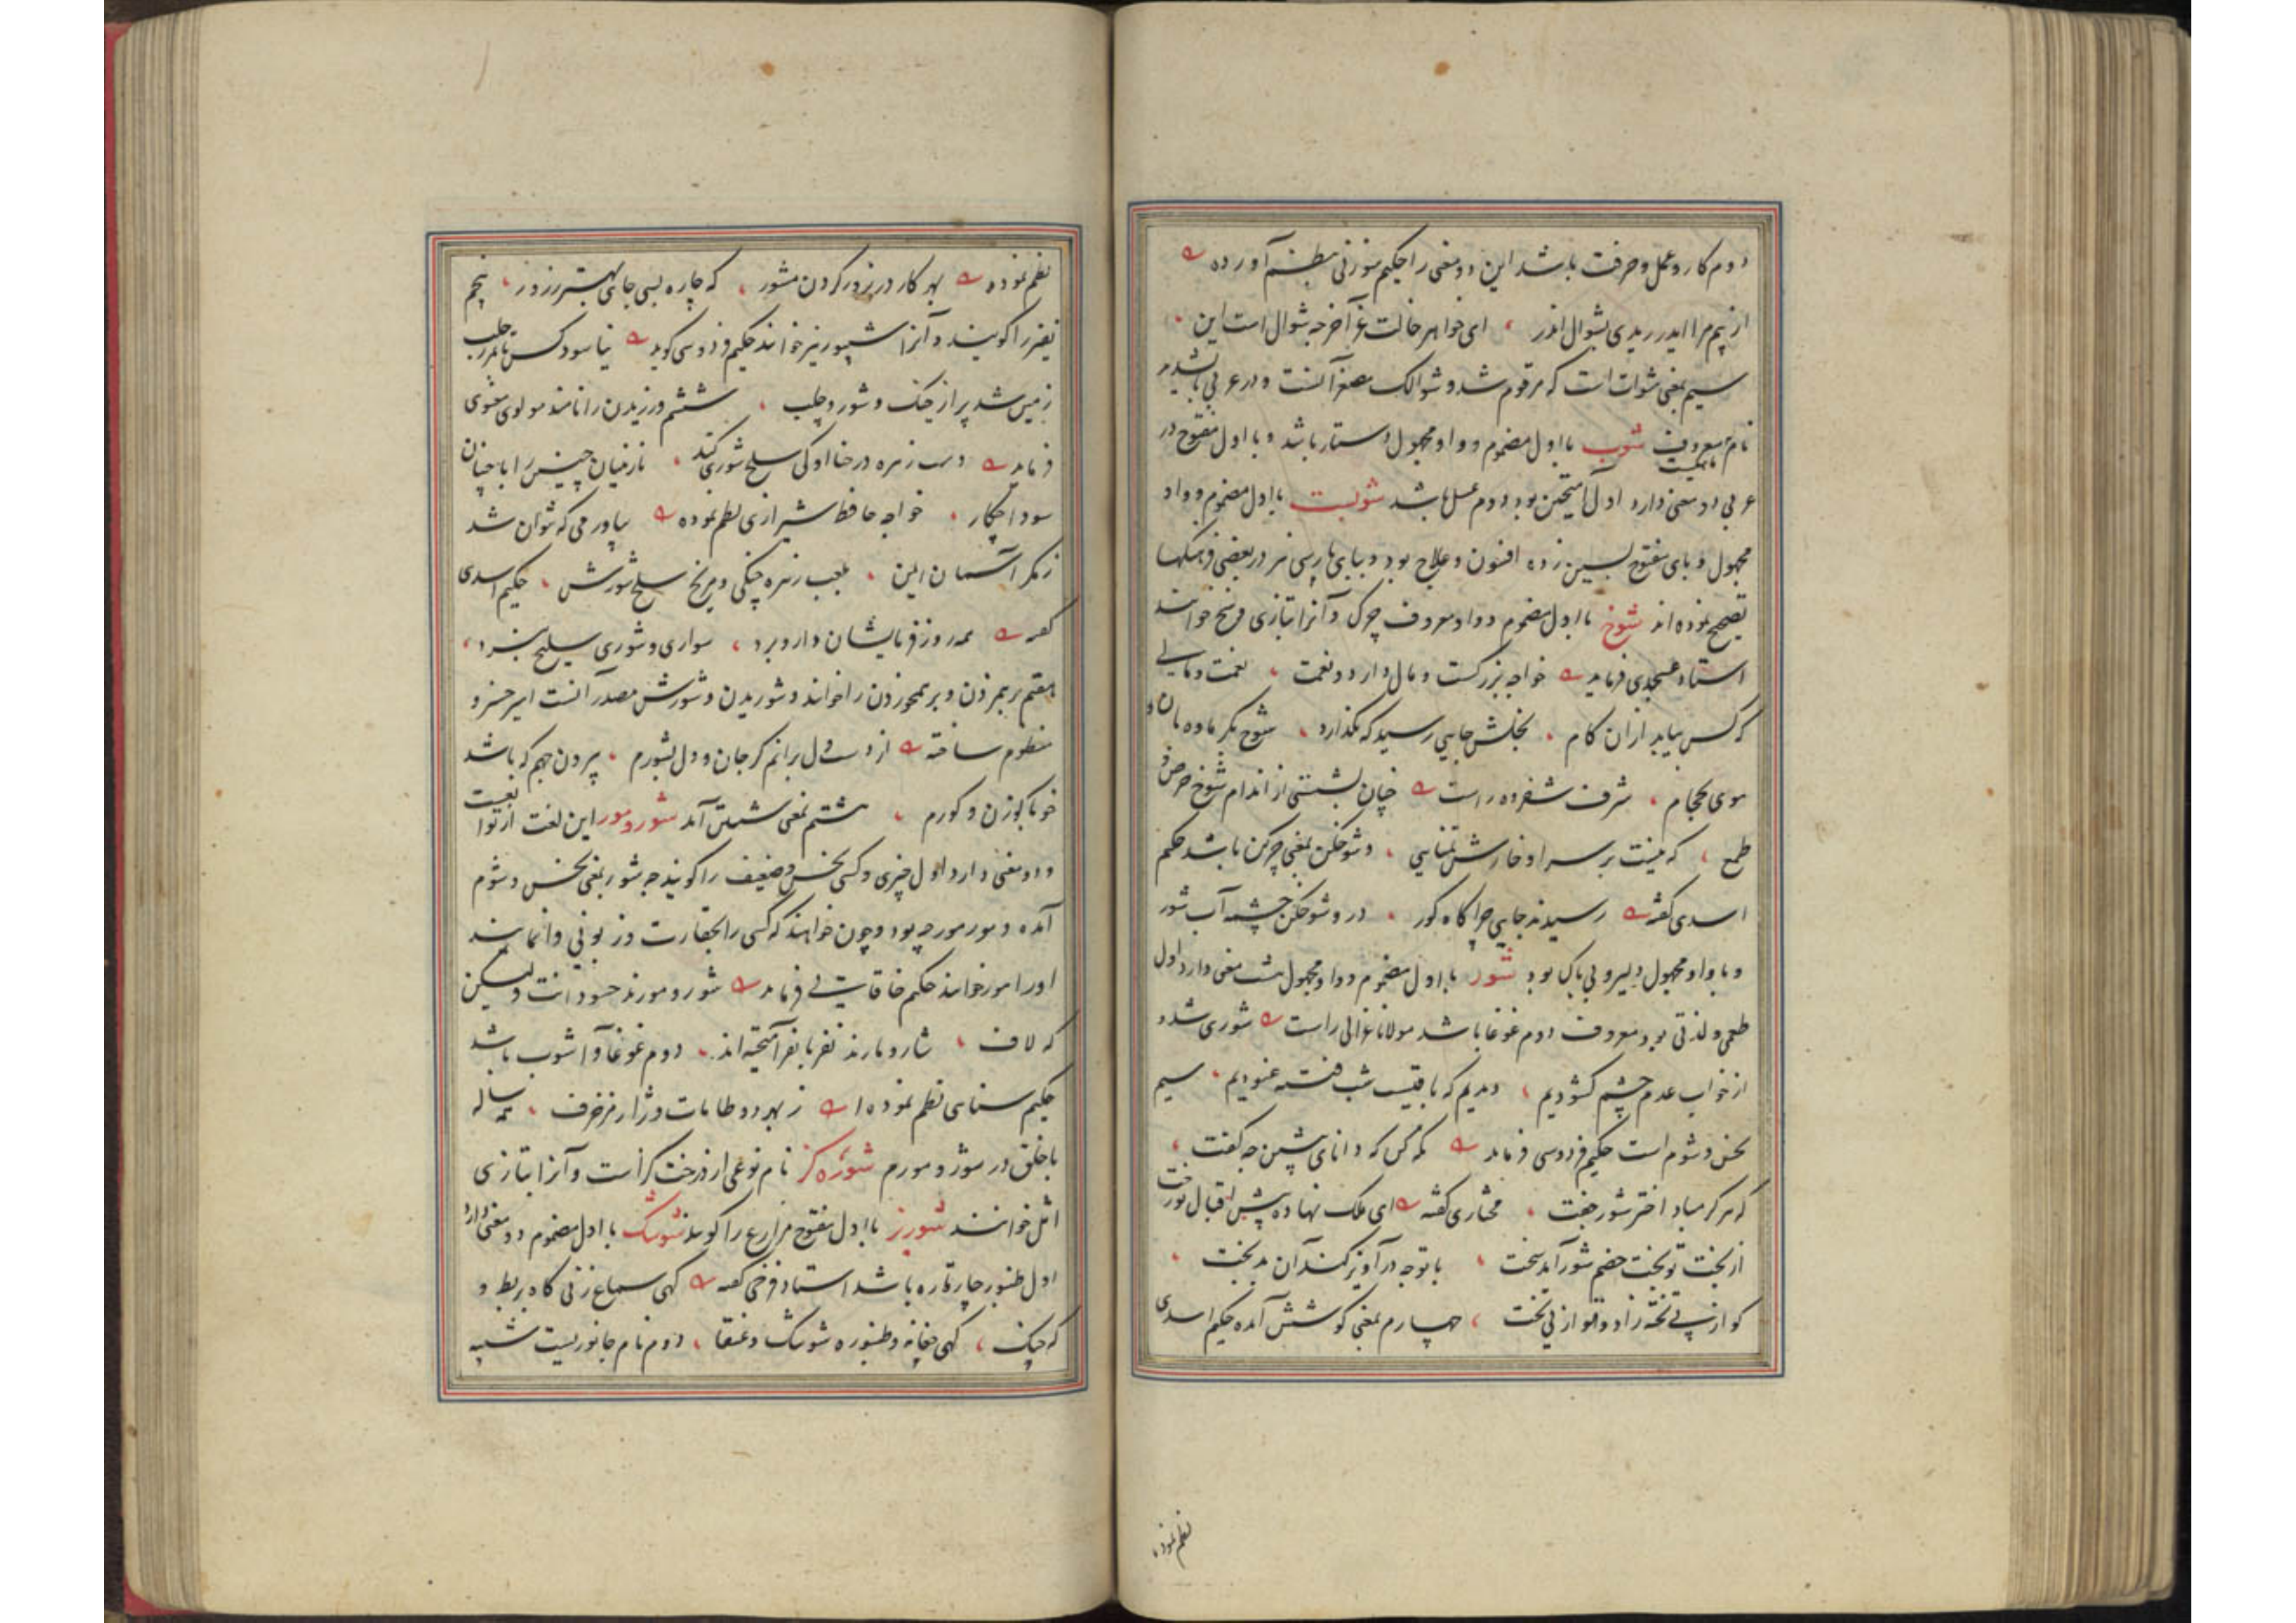 دوم کار و عمل و حرفت باشد این دو معنی را حکیم سوزنی بنظم آورده
از بیم مرا ایدر ریدی بشوال اندر ای خواهر خالت غر آخر چه شوال است این
سیم بمعنی شوات است که مرقوم شد و شوالک مصغر آنست و در عربی باشد
نام ماهیست معروف شوب با اول مضموم و واو مجهول دستار باشد و با اول مفتوح در
عربی دو معنی دارد اول آمیختن بود دوم عسل باشد شوبست با اول مضموم و واو
مجهول و بای مفتوح بسین زده افسون و علاج بود و ببای پارسی نیز در بعضی فرهنگها
تصحیح نموده‌اند شوخ با اول مضموم و واو معروف چرک و آنرا بتازی وسخ خوانند
استاد عسجدی فرماید خواجه بزرگست و مال دارد و نعمت نعمت و مالی
که کس نیابد ازان کام بخلش جایی رسید که نگذارد شوخ بگرمابه بان و
موی بحجام شرف شفروه راست چنان بشستی از اندام شوخ حرص و
طمع که نیست بر سر او خارش تمنایی و شوخکن بمعنی چرکن باشد حکیم
اسدی گفته رسیدند جایی چراگاه گور درو شوخکن چشمه آب شور
و با واو مجهول دلیر و بی باک بود شور با اول مضموم و واو مجهول هشت معنی دارد اول
طعمی و لذتی بود معروف دوم غوغا باشد مولانا غزالی راست شوری شد و
از خواب عدم چشم گشودیم دیدیم که باقیست شب فتنه غنودیم سیم
نحس و شوم است حکیم فردوسی فرماید نگه کن که دانای پیشین چه گفت
که هرگز مباد اختر شور جفت مختاری گفته ای ملک نهاده پیش اقبال تو رخت
از بخت تو بخت خصم شور آمد سخت با توچه درآویزد کمند آن بدبخت
کو از پی تخته زاد و تو از پی تخت چهارم بمعنی کوشش آمده حکیم اسدی
نظم نموده
نظم نموده بهر کار در زور کردن مشور که چاره بسی جای بهتر ز زور پنجم
نفیر را گویند و آنرا شیپور نیز خوانند حکیم فردوسی گوید نیاسود کس تا بدر جلب
زمین شد پر از جنگ و شور و جلب ششم ورزیدن را نامند مولوی معنوی
فرماید دست زهره در حنا او کی سلحشوری کند نازنینان چنین را با چنان
سودا چکار خواجه حافظ شیرازی نظم نموده بیاور می که نتوان شد
ز مکر آسمان ایمن بلعب زهره چنگی و مریخ سلحشورش حکیم اسدی
گفته همه روز فرمایشان دار و برد سواری و شوری سلیح نبرد
هفتم برهم زدن و برهم خوردن را خوانند و شوریدن و شورش مصدر آنست امیر خسرو
منظوم ساخته از دست دل برانم کز جان و دل بشورم پیرون جهم که باشد
خو با گوزن و گورم هشتم بمعنی شستن آمد شور و مور این لغت از توابعست
و دو معنی دارد اول چیزی و کسی نحس و ضعیف را گویند چه شور بمعنی نحس و شوم
آمده و مور مورچه بود و چون خواهند که کسی را بحقارت و زبونی وانمایند
او را مور خوانند حکیم خاقانی فرماید شور و مورند حسودانت ولیکن
که لاف شار و مارند نفر با نفر آمیخته‌اند دوم غوغا و آشوب باشد
حکیم سنایی نظم نموده ز بهر دو طامات و ژاژ مزخرف همه ساله
با خلق در شور و مورم شوره گز نام نوعی از درخت گز است و آنرا بتازی
اثل خوانند شورز با اول مفتوح مزارع را گویند شوشک با اول مضموم دو معنی دارد
اول طنبور چارتاره باشد استاد فرخی گفته گهی سماع زنی گاه بربط و
گه چنگ گهی چغانه و طنبوره شوشک و عنقا دوم نام جانوریست شبیه